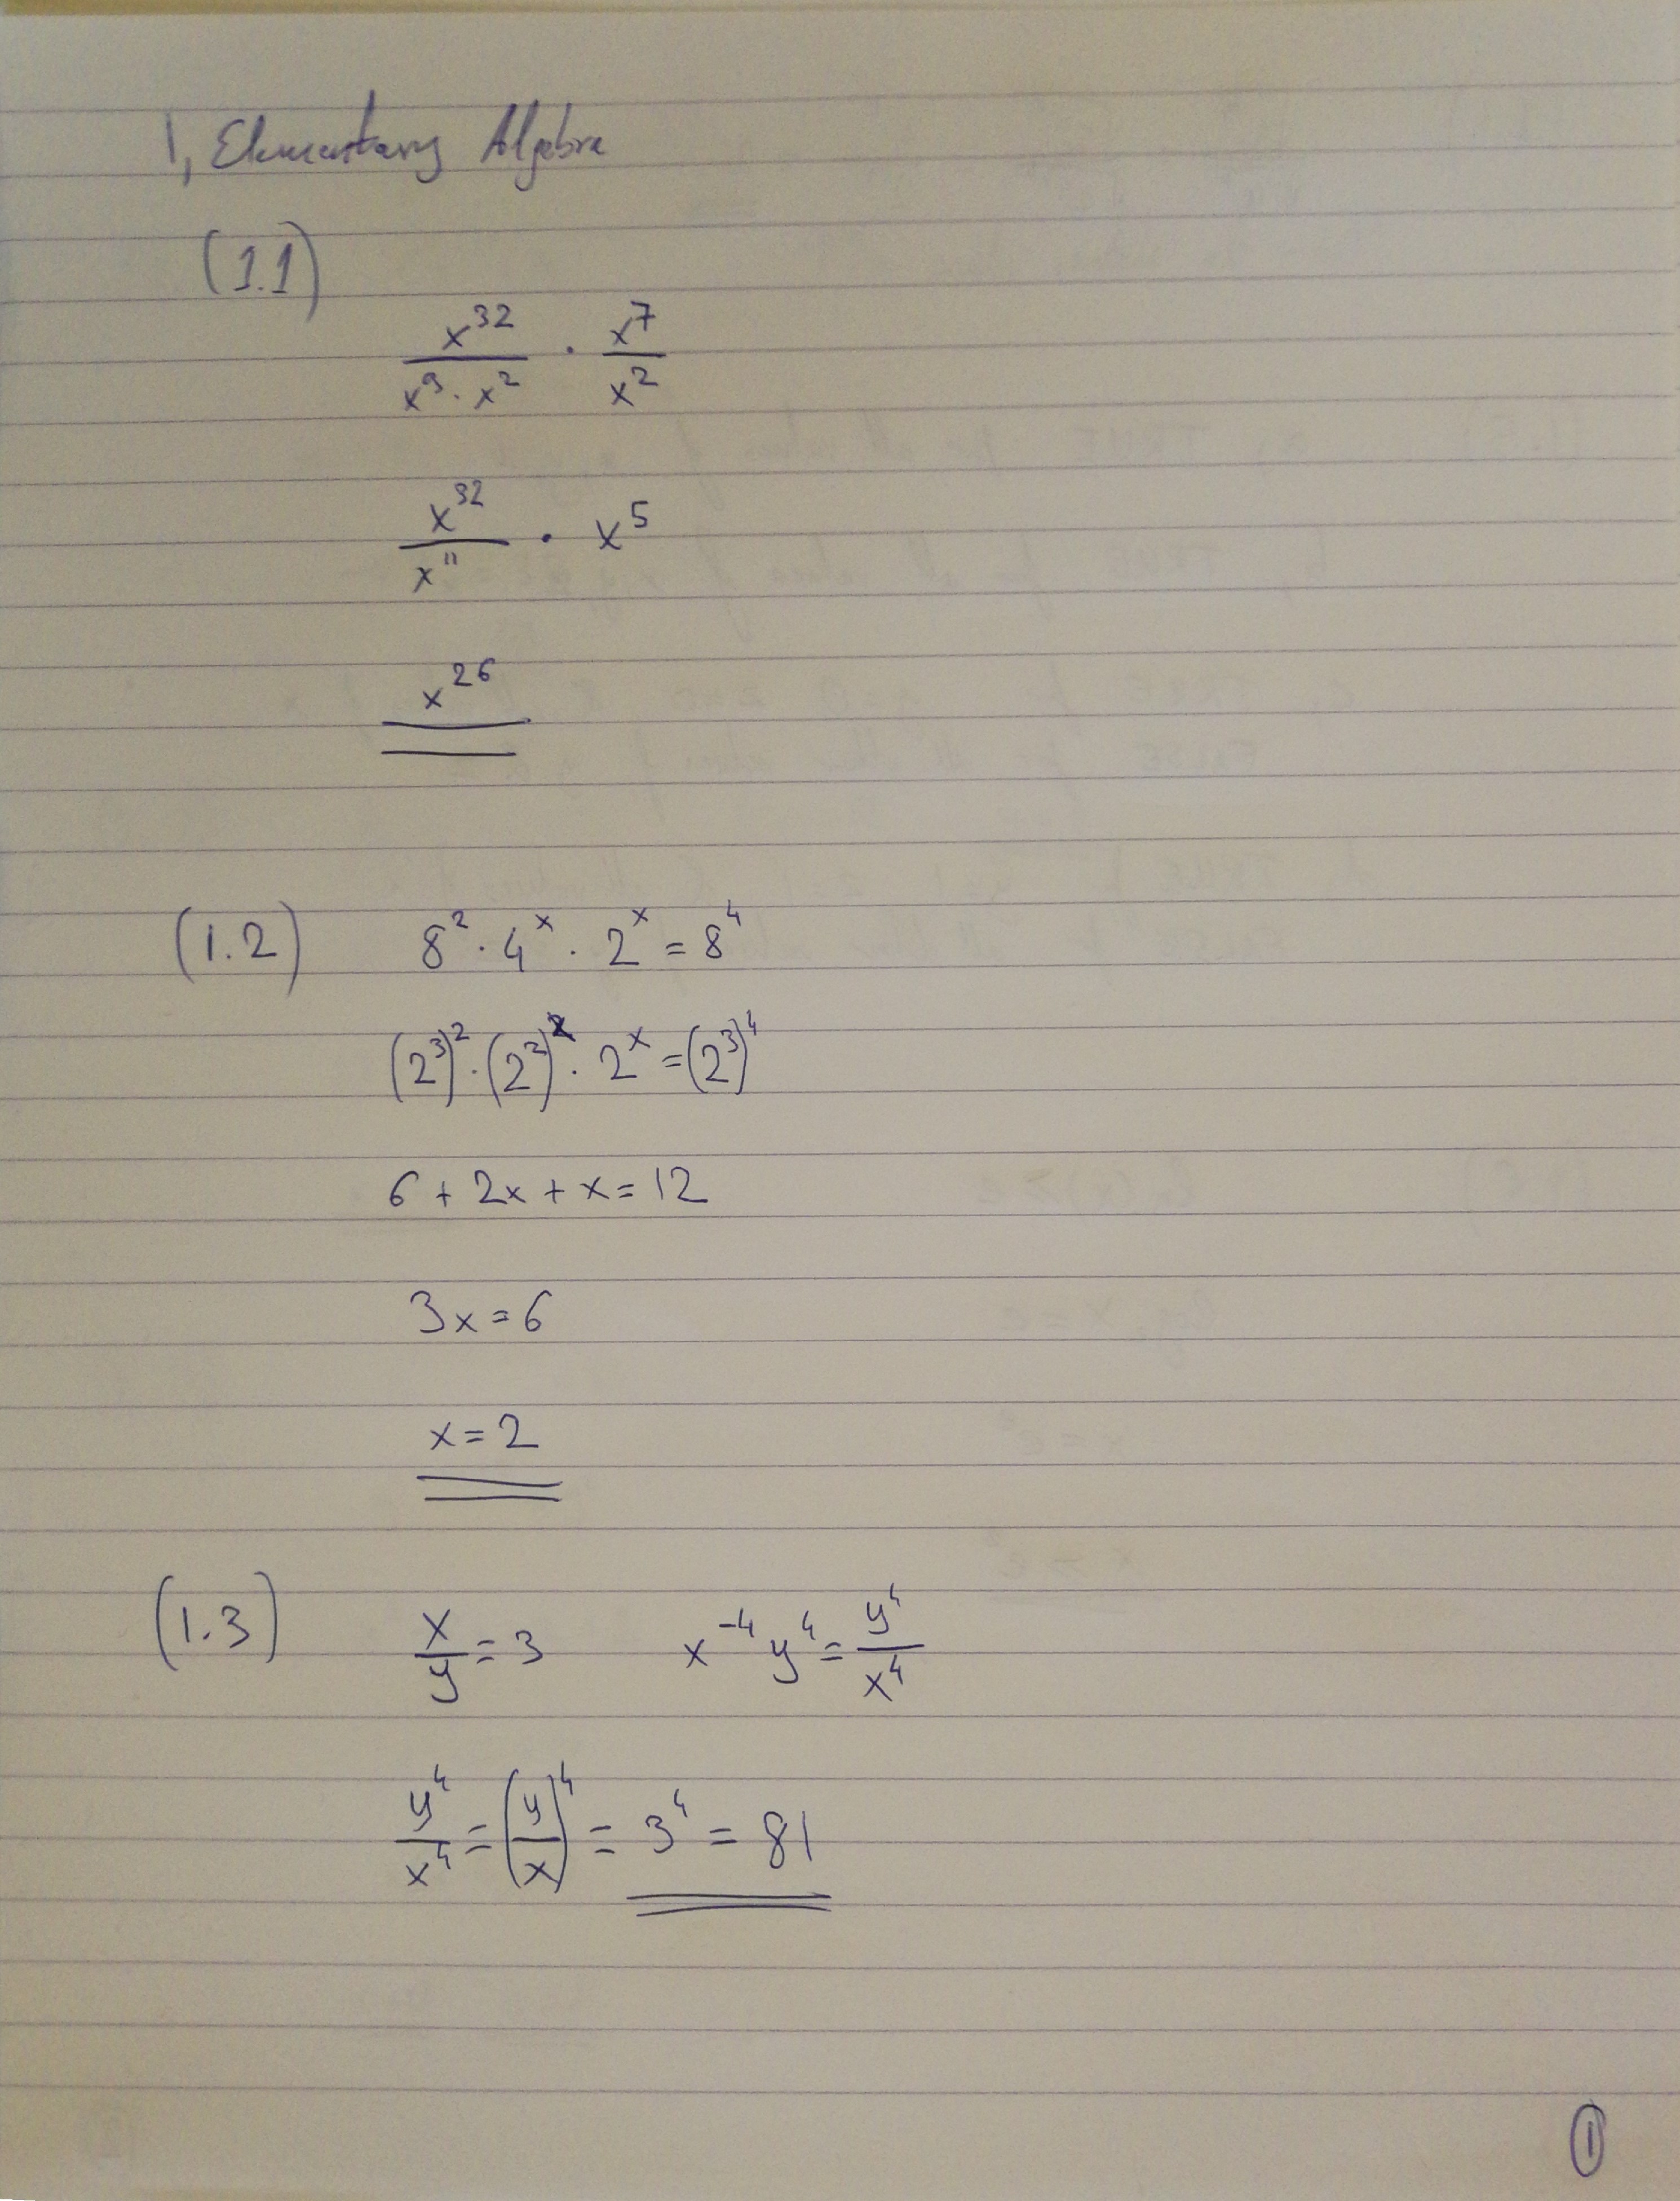 1, Elementary Algebra
(1.1)
x^32 / (x^9 · x^2) · x^7 / x^2
x^32 / x^11 · x^5
x^26
(1.2) 8^2 · 4^x · 2^x = 8^4
(2^3)^2 · (2^2)^x · 2^x = (2^3)^4
6 + 2x + x = 12
3x = 6
x = 2
(1.3) x/y = 3 x^-4 y^4 = y^4 / x^4
y^4 / x^4 = (y/x)^4 = 3^4 = 81
1